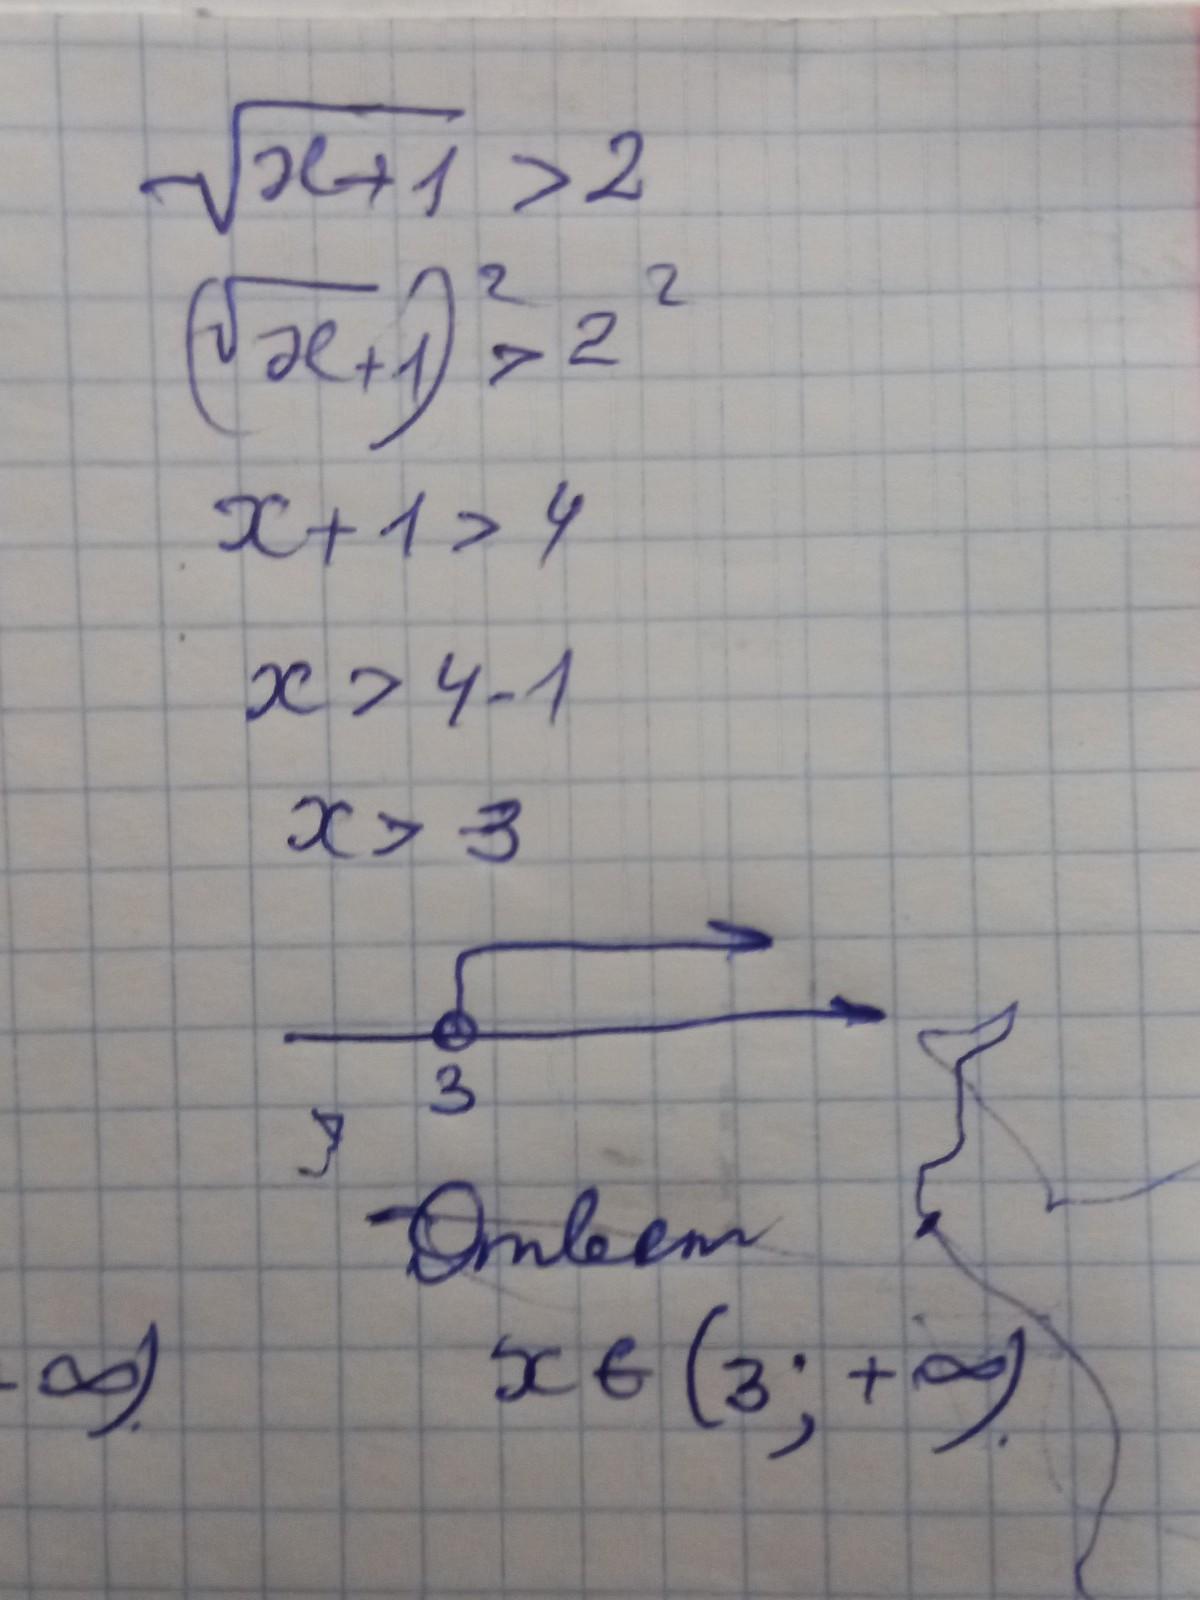 √x+1 > 2
(√x+1)² > 2²
x+1 > 4
x > 4-1
x > 3
3
Ответ
-∞)
x ∈ (3; +∞).